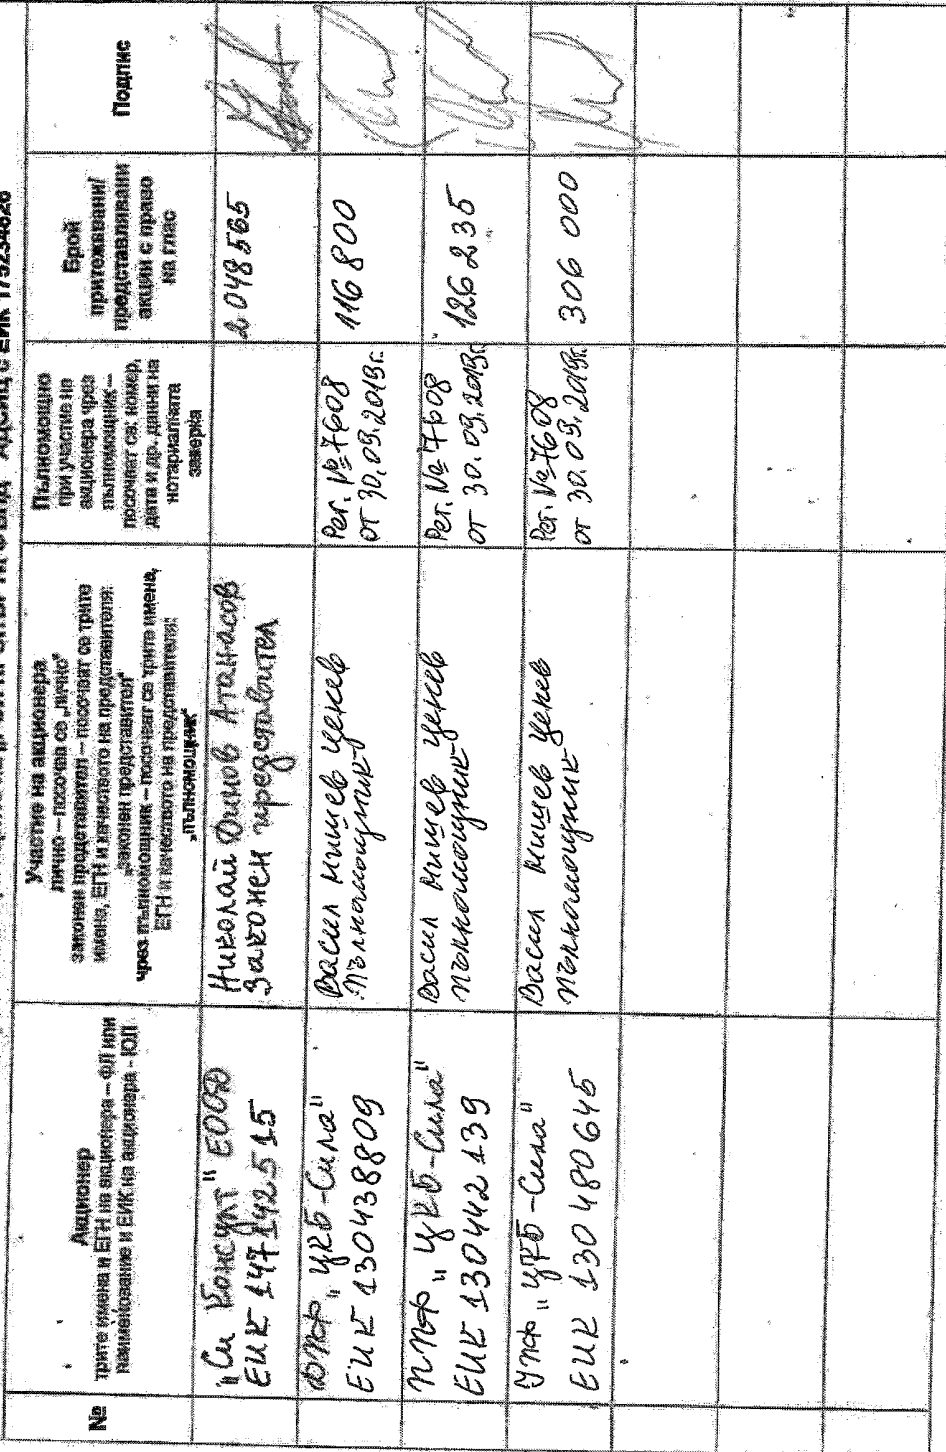 АДСИЦ с ЕИК 175234826
№
Акционер
трите имена и ЕГН на акционера – ФЛ или
наименование и ЕИК на акционера - ЮЛ
Участие на акционера
лично – посочва се „лично"
законен представител – посочват се трите
имена, ЕГН и качеството на представителя:
„законен представител"
чрез пълномощник – посочват се трите имена,
ЕГН и качеството на представителя:
„пълномощник"
Пълномощно
при участие на
акционера чрез
пълномощник –
посочват се: номер,
дата и др. данни на
нотариалната
заверка
Брой
притежавани/
представлявани
акции с право
на глас
Подпис
"Си Консулт" ЕООД
ЕИК 147142515
Николай Динов Атанасов
Законен представител
2 048 565
ДПФ „ЦКБ-Сила"
ЕИК 130438809
Васил Мишев Ценев
Пълномощник
Рег. №7608
от 30.09.2019г.
116 800
ППФ „ЦКБ-Сила"
ЕИК 130442139
Васил Мишев Ценев
Пълномощник
Рег. №7608
от 30.09.2019г.
126 235
УПФ „ЦКБ-Сила"
ЕИК 130480645
Васил Мишев Ценев
Пълномощник
Рег. №7608
от 30.09.2019г.
306 000